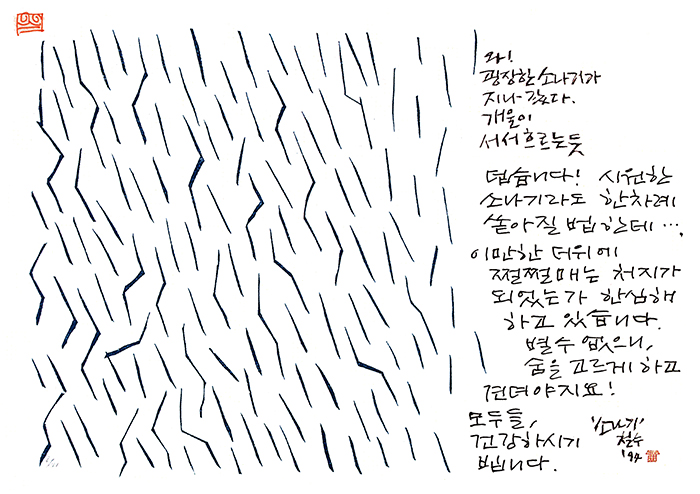 와!
굉장한 소나기가
지나 갔다.
개울이
서서 흐르는 듯
덥습니다! 시원한
소나기라도 한차례
쏟아질 법 한데….
이만한 더위에
쩔쩔매는 처지가
되었는가 한심해
하고 있습니다.
별수 없으니,
숨을 고르게 하고
견뎌야지요!
모두들,
건강하시기
빕니다.
'소나기'
철수
'94